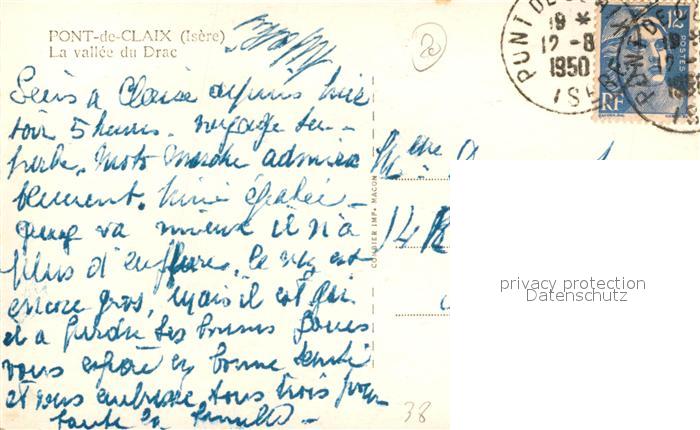 PONT-de-CLAIX (Isère)
La vallée du Drac
à Claix depuis hier
soir 5 heures. voyage su-
perbe. Moto marche admira
blement.
va mieux il n'a
plus d'enflures, le nez est
encore gros, mais il est gai
il a perdu ses bonnes joues
vous espère en bonne santé
et vous embrasse tous trois pour
toute la famille -
Melle
14 R
COMBIER IMP. MACON
PONT DE
18 *
12 - 8
1950
ISÈRE
12F
POSTES
RF
20
38
privacy protection
Datenschutz